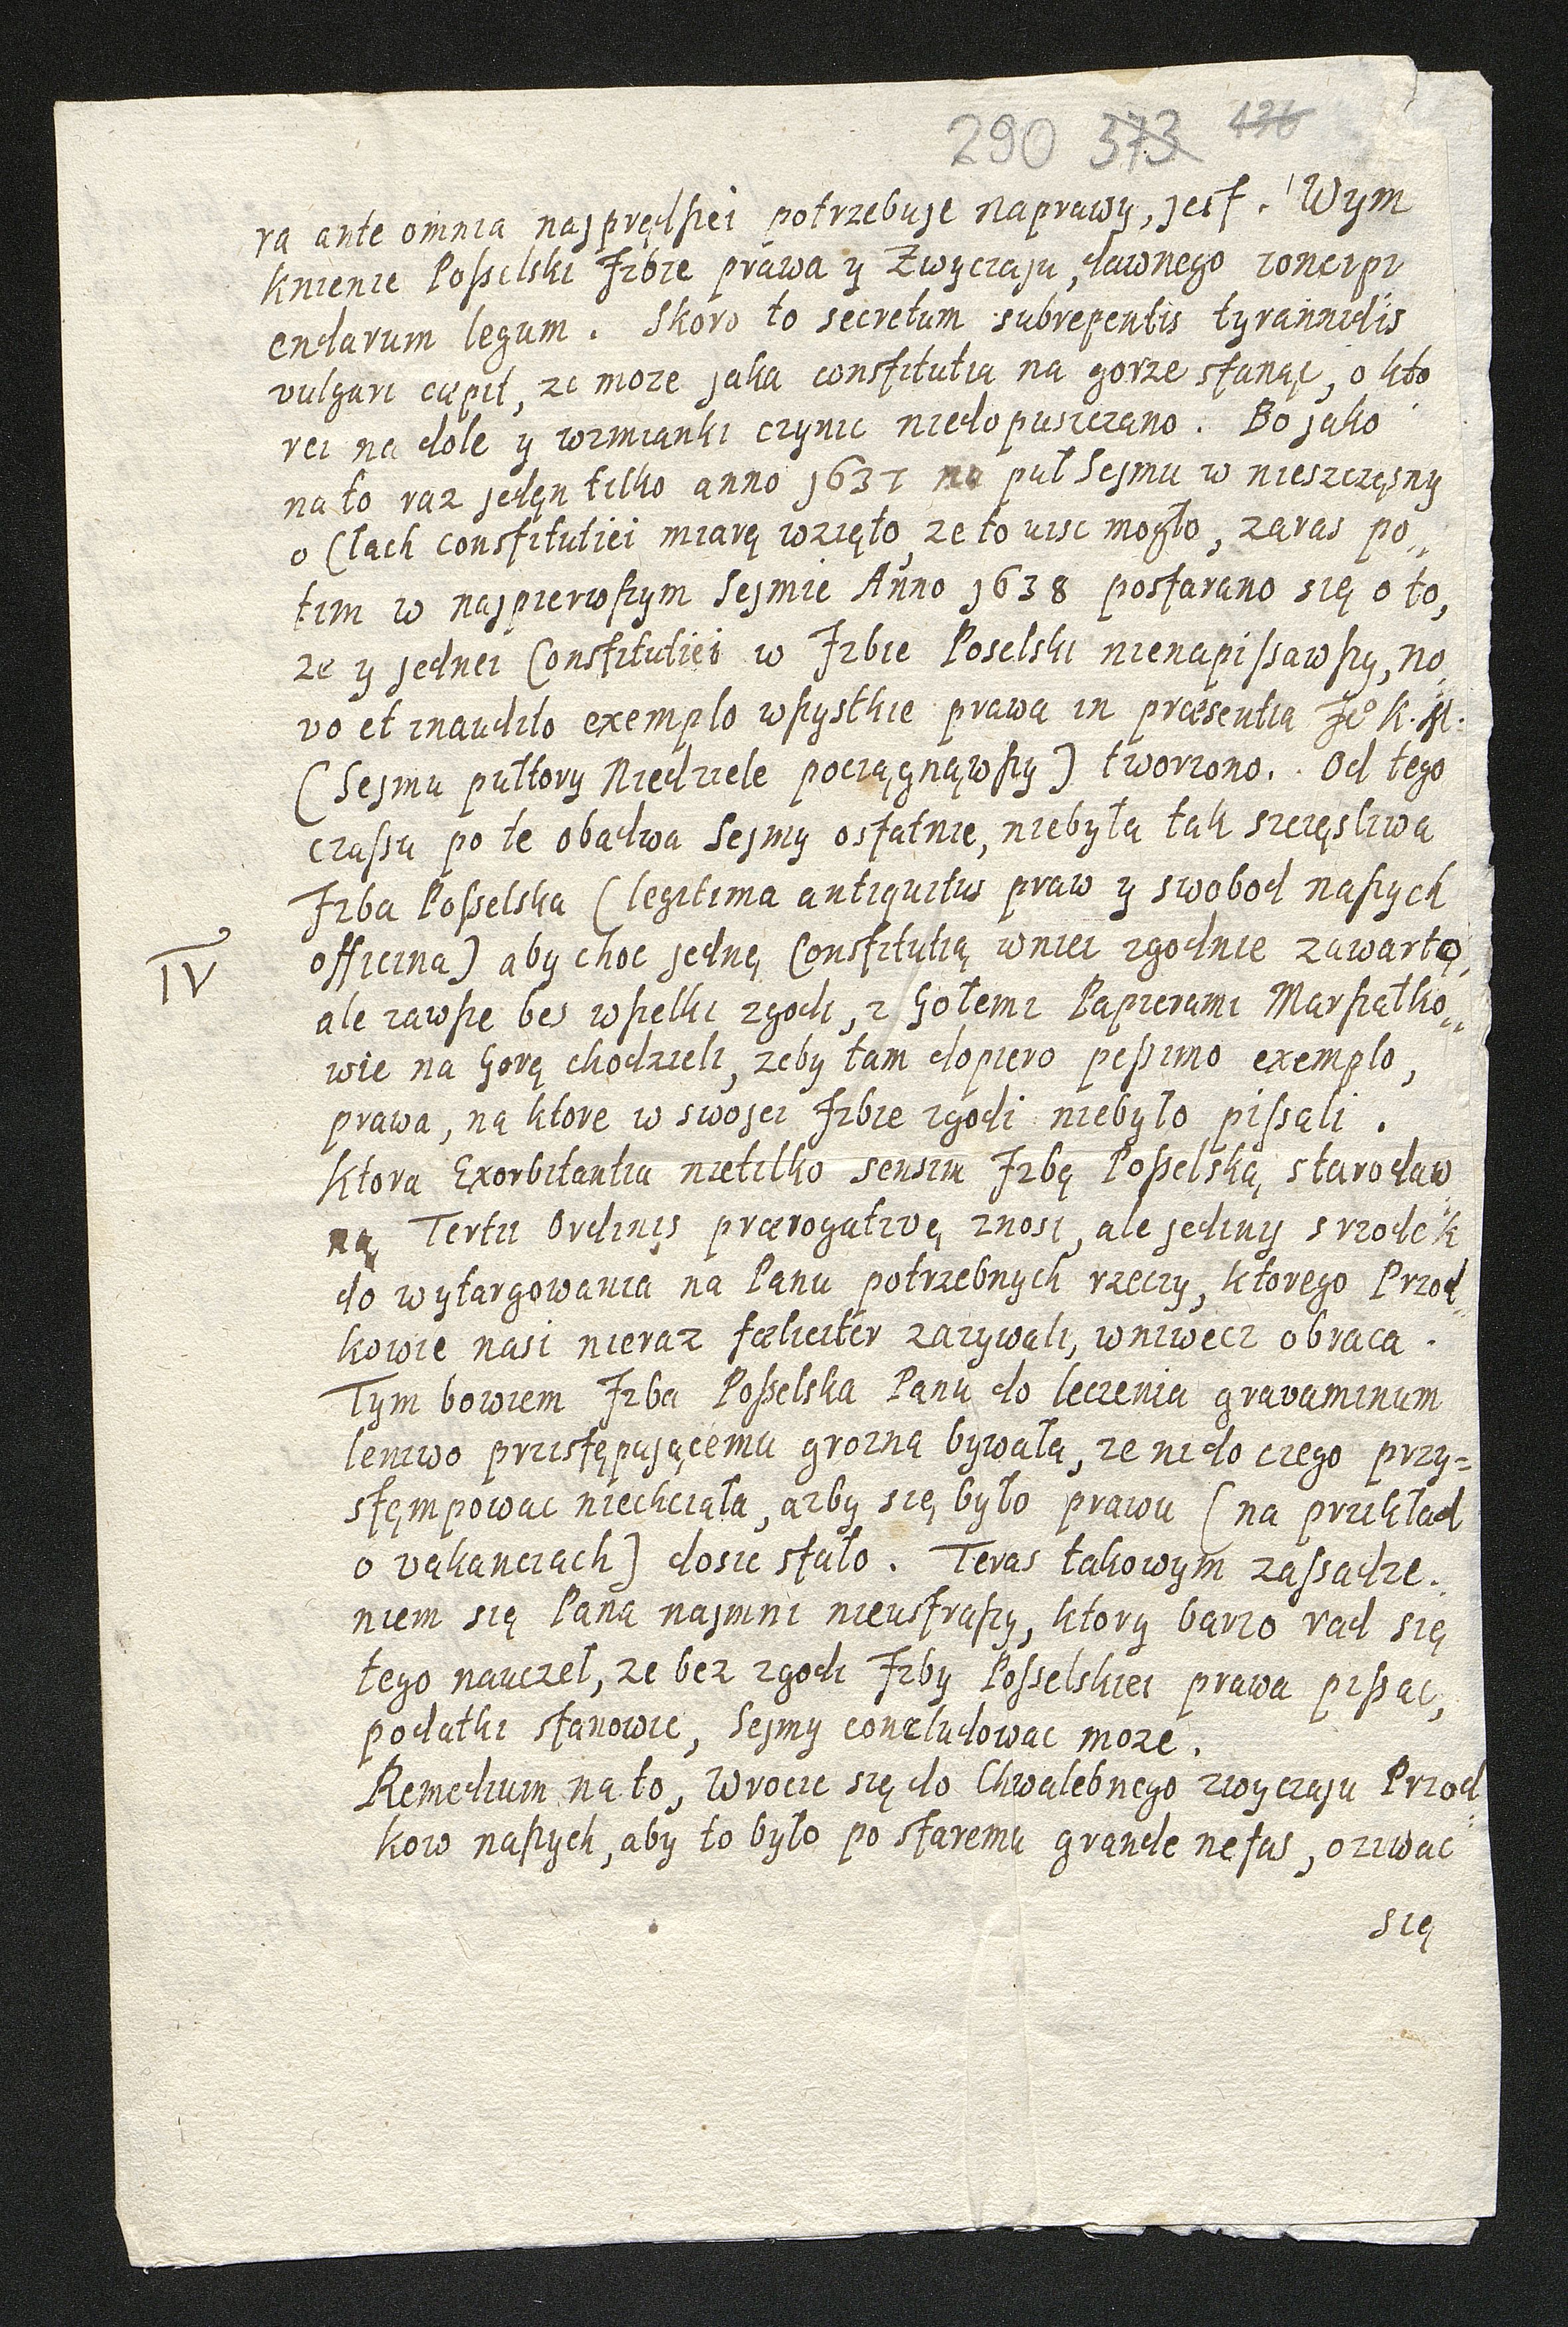 290 373 436
ra ante omnia najprędßei potrzebuje naprawy, jest. Wym
knienie Poßelski Izbie prawa y Zwyczaju, dawnego concipi
endarum legum. Skoro to secretum subrepentis tyrannidis
vulgari cæpit, ze moze jaka constitutia na gorze stanąc, o kto
rei na dole y wzmianki czynic niedopusczano. Bo jako
na to raz jedęn tilko anno 1637 na puł Sejmu w nieszczęsny
o Cłach constitutiei miarę wzięto, ze to uisc mogło, zaras po„
tim w najpierwßym Sejmie Anno 1638 postarano się o to,
ze y jednei Constitutiei w Izbie Poselski nienapissawßy, no„
vo et inaudito exemplo wßystkie prawa in præsentia Jº K. M:
(Sejmu pułtory Niedziele pociągnąwßy) tworzono. Od tego
czassu po te obadwa Sejmy ostatnie, niebyła tak szczęsliwa
Izba Poßelska (legitima antiquitus praw y swobod naßych
officina) aby choc jednę Constitutią wniei zgodnie zawarto,
IV
ale zawße bes wßelki zgodi, z Gołemi Papierami Marßałko„
wie na Gorę chodzieli, zeby tam dopiero peßimo exemplo,
prawa, na ktore w swojei Izbie zgodi niebyło pissali.
Ktora Exorbitantia nietilko sensim Izbę Poßelską, starodaw
ną Tertii Ordinis prærogativę znosi, ale jediny srzodek
do wytargowania na Panu potrzebnych rzeczy, ktorego Przod„
kowie nasi nieraz fæliciter zazywali, wniwecz obraca.
Tym bowiem Izba Poßelska Panu do leczenia gravaminum
leniwo przistępującemu grozna bywała, ze ni do czego przy=
stęmpowac niechciała, azby się było prawu (na przikład
o vakanciach) dosic stało. Teras takowym zassadze„
niem się Pana najmni nieustraßy, ktory barzo rad się
tego nauczeł, ze bez zgodi Izby Posselskiei prawa pißac,
podatki stanowic, Sejmy concludowac moze.
Remedium na to, Wrocic się do Chwalebnego zwyczaju Przod„
kow naßych, aby to było po staremu grande nefas, oziwac
się